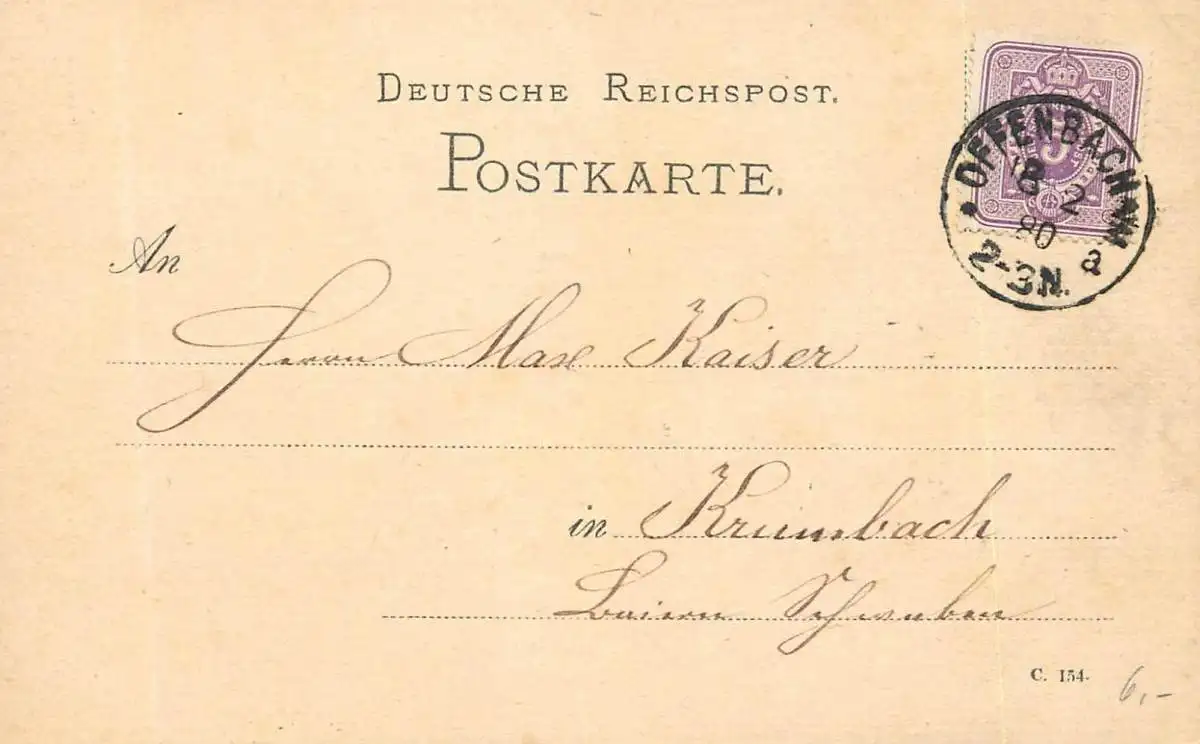 DEUTSCHE REICHSPOST.
POSTKARTE.
OFFENBACH MAIN
8 2
80
2-3N. a
5
An
Herrn Max Kaiser
in Krumbach
Baiern Schwaben
C. 154.
6,-